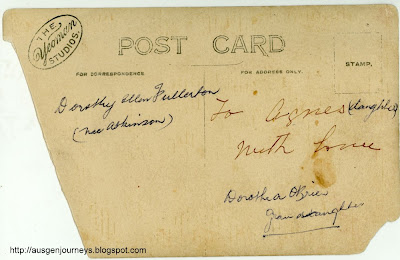 THE
Yeoman
STUDIOS.
POST CARD
FOR CORRESPONDENCE.
FOR ADDRESS ONLY.
STAMP.
Dorothy Ellen Fullerton
(nee Atkinson)
To Agnes (daughter)
With love
Dorothea O'Brien
Grandaughter
http://ausgenjourneys.blogspot.com